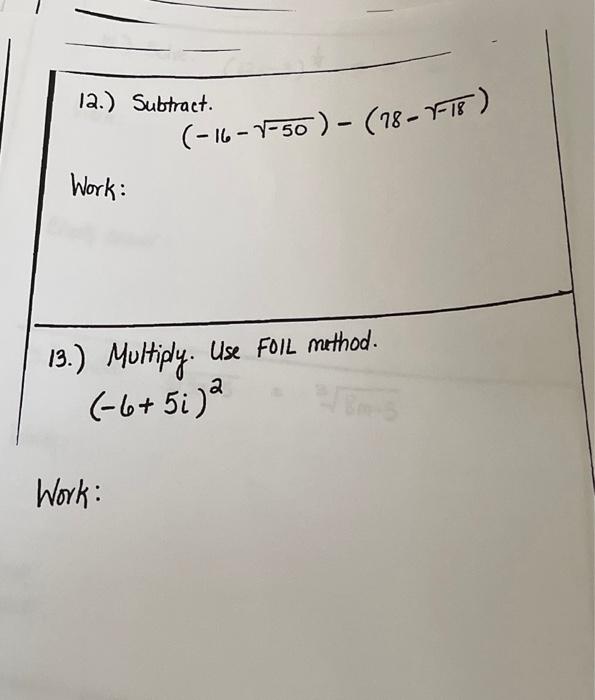 12.) Subtract.
(-16-√-50) - (78-√-18)
Work:
13.) Multiply. Use FOIL method.
(-6+5i)²
Work: